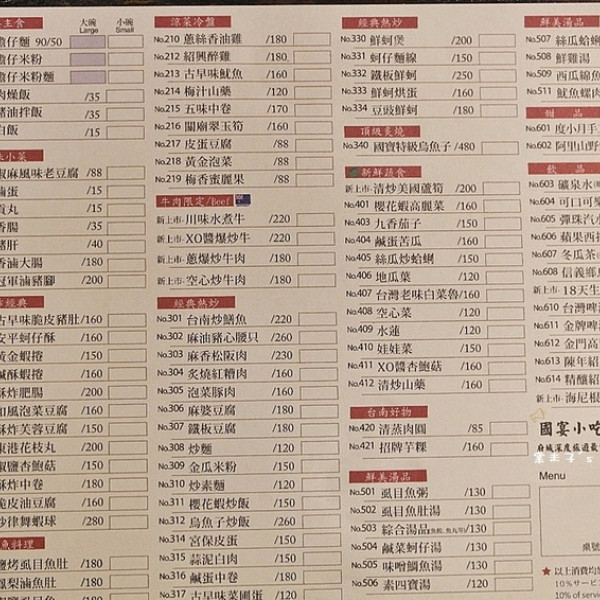 主食 大碗 小碗
Large Small
擔仔麵 90/50
擔仔米粉
擔仔米粉麵
肉燥飯 /35
豬油拌飯 /35
白飯 /15
小菜
椒麻風味老豆腐 /88
滷蛋 /15
貢丸 /15
香腸 /35
豬肝 /40
香滷大腸 /180
冠軍滷豬腳 /200
經典
古早味脆皮豬肚/160
安平蚵仔酥 /160
黃金蝦捲 /150
鹹酥蝦捲 /160
酥炸肥腸 /200
和風泡菜豆腐 /160
酥炸芙蓉豆腐 /150
東港花枝丸 /200
椒鹽杏鮑菇 /150
脆皮油豆腐 /160
旋律舞蝦球 /280
魚料理
鹽烤虱目魚肚 /180
鳳梨滷魚肚 /180
涼菜冷盤
No.210 蔥絲香油雞 /180
No.212 紹興醉雞 /180
No.213 古早味魷魚 /160
No.214 梅汁山藥 /120
No.215 五味中卷 /170
No.216 關廟翠玉筍 /160
No.217 皮蛋豆腐 /88
No.218 黃金泡菜 /88
No.219 梅香蜜麗果 /88
牛肉限定/Beef
新上市·川味水煮牛 /220
新上市·XO醬爆炒牛 /220
新上市·蔥爆炒牛肉 /180
新上市·空心炒牛肉 /180
經典熱炒
No.301 台南炒鱔魚 /220
No.302 麻油豬心腰只 /260
No.303 麻香松阪肉 /230
No.304 炙燒紅糟肉 /160
No.305 泡菜豚肉 /160
No.306 麻婆豆腐 /180
No.307 鐵板豆腐 /180
No.308 炒麵 /120
No.309 金瓜米粉 /150
No.310 炒素麵 /120
No.311 櫻花蝦炒飯 /150
No.312 烏魚子炒飯 /260
No.314 宮保皮蛋 /150
No.315 蒜泥白肉 /150
No.316 鹹蛋中卷 /180
No.317 古早味菜圃蛋 /120
經典熱炒
No.330 鮮蚵煲 /200
No.331 蚵仔麵線 /150
No.332 鐵板鮮蚵 /250
No.333 鮮蚵烘蛋 /160
No.334 豆豉鮮蚵 /180
頂級炙燒
No.340 國寶特級烏魚子 /480
新鮮蔬食
新上市·清炒美國蘆筍 /200
No.401 櫻花蝦高麗菜 /160
No.403 九香茄子 /150
No.404 鹹蛋苦瓜 /160
No.405 絲瓜炒蛤蜊 /150
No.406 地瓜葉 /120
No.407 台灣老味白菜魯/160
No.408 空心菜 /120
No.409 水蓮 /120
No.410 娃娃菜 /150
No.411 XO醬杏鮑菇 /160
No.412 清炒山藥 /160
台南好物
No.420 清蒸肉圓 /85
No.421 招牌芋粿 /160
鮮美湯品
No.501 虱目魚粥 /130
No.502 虱目魚肚湯 /130
No.503 綜合湯品 /130
No.504 鹹菜蚵仔湯 /130
No.505 味噌鯛魚湯 /130
No.506 素四寶湯 /120
鮮美湯品
No.507 絲瓜蛤蜊
No.508 鮮雞湯
No.509 西瓜綿魚
No.511 魷魚螺肉
甜 品
No.601 度小月手
No.602 阿里山野
飲 品
No.603 礦泉水
No.604 可口可樂
No.605 彈珠汽水
No.606 蘋果西打
No.607 冬瓜茶
No.608 信義鄉
新上市·18天生
No.610 台灣啤
No.611 金牌啤
No.612 金門高
No.613 陳年紹
No.614 精釀紹
新上市·海尼根
國宴小吃
府城深度旅遊最
Menu
桌號
★以上消費均
10%サービ
10% of servi